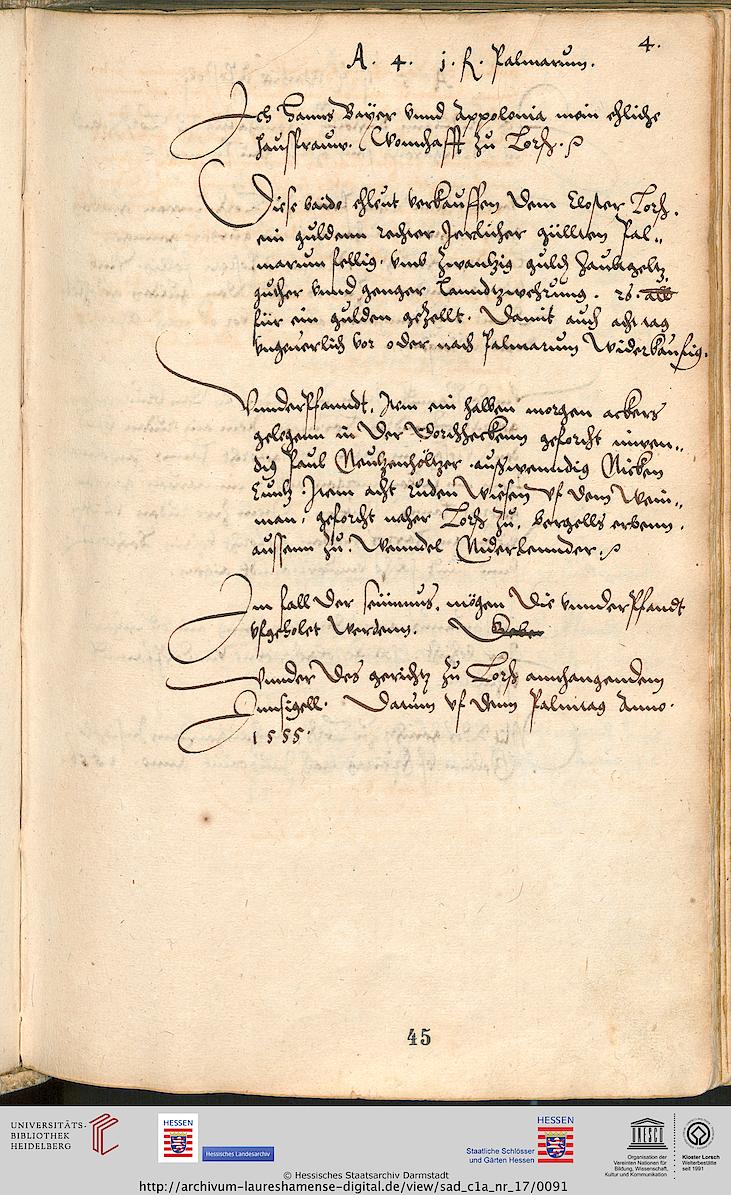 4.
A. 4. j. fl. Palmarum.
Ich Hanns Bayer vnnd Appolonia mein ehliche
haussfrauw. Wonhafft zu Lorsch.
Diese baide ehleut verkauffen dem Closter Lorsch.
ein guldenn rechter Jerlicher güllten Pal„
marum fellig. vmb zwantzig guld haubtgeltz,
guther vnnd genger Lanndtzwehrung. 26. alb
für ein gulden gezellt. Damit auch acht tag
vngeuerlich vor oder nach Palmarum Widerkaufig.
Vnderpfanndt. Item ein halben morgen ackers
gelegenn in der Dorchheckenn geforcht inwen„
dig Paul Neutzenhöltzer. außwenndig Nicken
Cuntz. Item acht ruden Wiesen vf dem Wein„
man, geforcht naher Lorsch zu, bergells erbenn.
aussenn zu. Wenndel Niderlennder.
Im fall der seümnus. mögen die vnnderpfandt
vfgeholet werdenn.
Vnnder des gerichtz zu Lorsch annhangendem
Innsigell. Datum vf denn Palmtag Anno.
1555.
45
UNIVERSITÄTS-
BIBLIOTHEK
HEIDELBERG
HESSEN
Hessisches Landesarchiv
Staatliche Schlösser
und Gärten Hessen
HESSEN
UNESCO
Organisation der
Vereinten Nationen für
Bildung, Wissenschaft,
Kultur und Kommunikation
Kloster Lorsch
Welterbestätte
seit 1991
© Hessisches Staatsarchiv Darmstadt
http://archivum-laureshamense-digital.de/view/sad_c1a_nr_17/0091